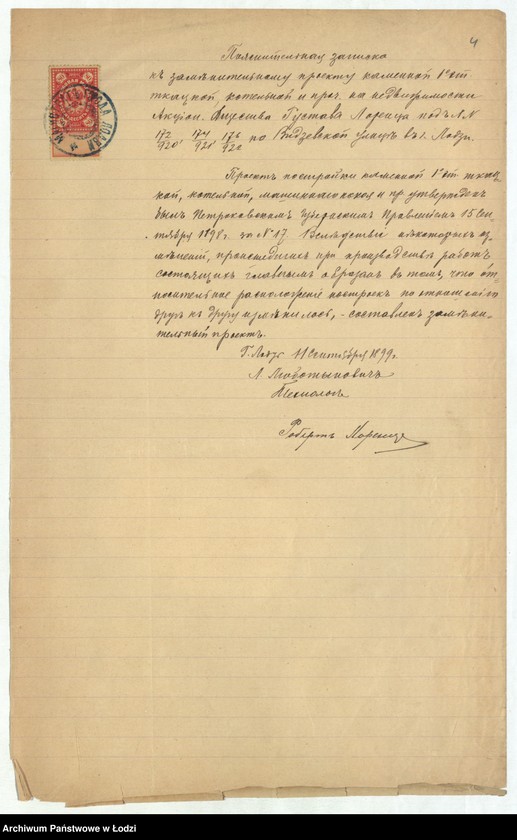 4
Пояснительная записка
къ замѣнительному проекту каменной 1 эт.
ткацкой, котельной и проч. на недвижимости
Акціон. Общества Густава Лоренца подъ №№
172/920 174/921 176/922 по Видзевской улицѣ въ г. Лодзи.
Проектъ постройки каменной 1 эт. ткац-
кой, котельной, машиннаго и пр. утвержденъ
былъ Петроковскимъ Губернскимъ Правленіемъ 15 Сен-
тября 1898 г. за № 17. Вслѣдствіе нѣкоторыхъ из-
мѣненій, происшедшихъ при производствѣ работъ,
состоящихъ главнымъ образомъ въ томъ, что от-
носительное расположеніе построекъ по отношенію
другъ къ другу измѣнилось, - составленъ замѣни-
тельный проектъ.
Г. Лодзь 11 Сентября 1899 г.
Технологъ
Робертъ Лоренцъ
Archiwum Państwowe w Łodzi